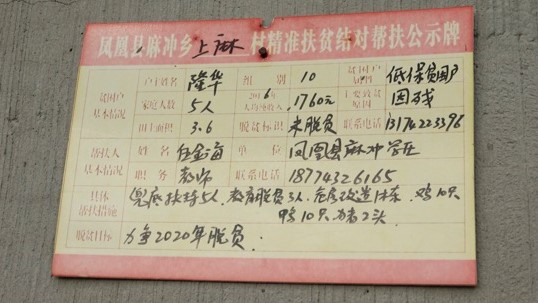 凤凰县麻冲乡上麻村精准扶贫结对帮扶公示牌
贫困户基本情况 户主姓名 隆华 组别 10 贫困户属性 低保贫困户
家庭人数 5人 2016年人均纯收入 1760元 主要致贫原因 因残
田土面积 3.6 脱贫标识 未脱贫 联系电话 13174223396
帮扶人基本情况 姓名 任金海 单位 凤凰县麻冲学区
职务 教师 联系电话 18774326165
具体帮扶措施 兜底扶持5人、教育脱贫3人、危房改造1栋、鸡10只
鸭10只
脱贫目标 力争2020年脱贫.